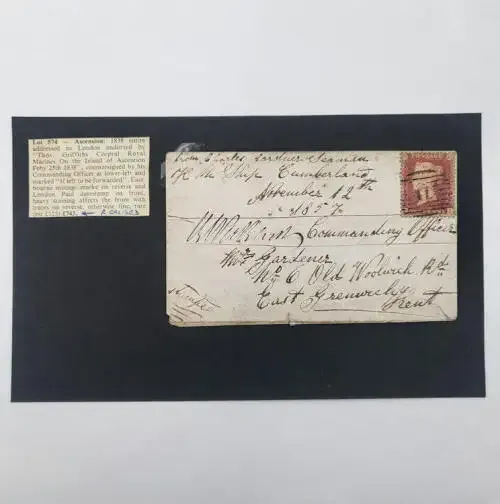 Lot 574 — Ascension: 1838 entire
addressed to London endorsed by
"Thos Griffiths Corpral Royal
Marines On the Island of Ascention
Feby 25th 1838", countersigned by his
Commanding Officer at lower-left and
marked "If left to be forwarded". East-
bourne mileage marks on reverse and
London Paid datestamp on front,
heavy staining affects the front with
traces on reverse, otherwise fine, rare
£743.
From Charles Gardner Seaman
Ship Cumberland
November 12th
1857
Commanding Officer
Mrs Gardener
No 6 Old Woolwich Rd
East Greenwich
Kent